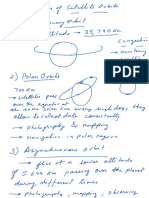 of Satellite Orbits
Orbit
altitude → 35,780 km
2) Polar Orbits
700 km
→ satellites pass
over the equator at
the same solar time every single day, they
are allowed to collect data consistently
→ photography & mapping
→ navigation in polar regions
3) Asynchronous orbit
→ flies at a similar altitude
of ≤ 644 km passing over the planet
during different times
→ photography, mapping, observing